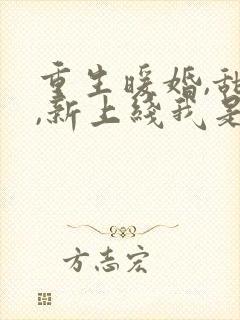 重生暖婚,甜
,新上线我是
方志宏